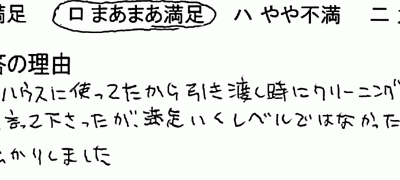 満足 ロ まあまあ満足 ハ やや不満 ニ
答の理由
ハウスに使ってたから引き渡し時にクリーニング
言って下さったが、満足いくレベルではなかった
かりしました